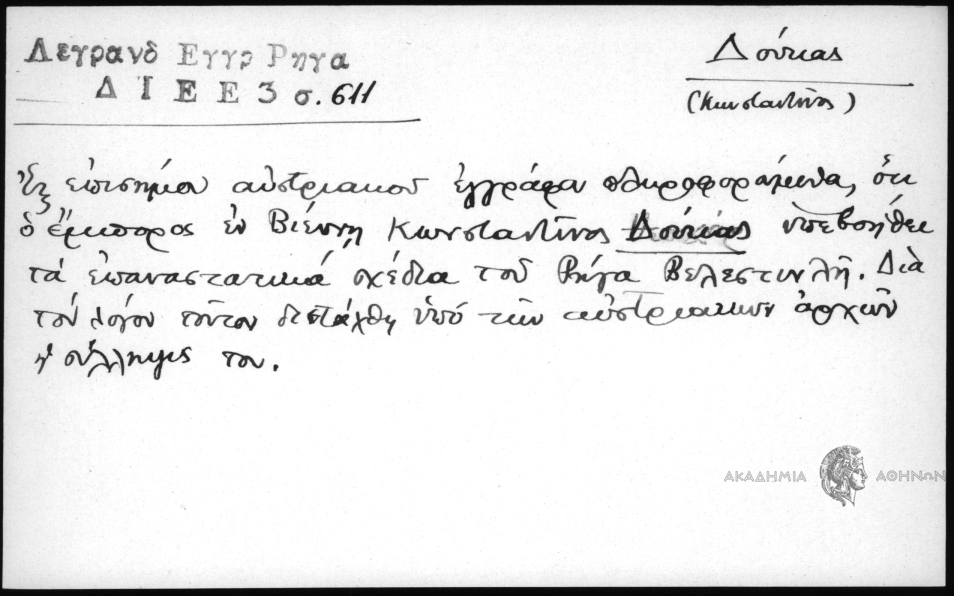 Λεγρανδ Εγγρ Ρηγα
Δ Ι Ε Ε 3 σ. 611
Δούκας
(Κωνσταντῖνος)
Ἐξ ἐπισήμου αὐστριακοῦ ἐγγράφου πληροφορούμεθα, ὅτι
ὁ ἔμπορος ἐν Βιέννῃ Κωνσταντῖνος Δούκας ὑπεβοήθει
τά ἐπαναστατικά σχέδια τοῦ Ρήγα Βελεστινλῆ. Διὰ
τόν λόγον τοῦτον διετάχθη ὑπό τῶν αὐστριακῶν ἀρχῶν
ἡ σύλληψίς του.
ΑΚΑΔΗΜΙΑ ΑΘΗΝΩΝ